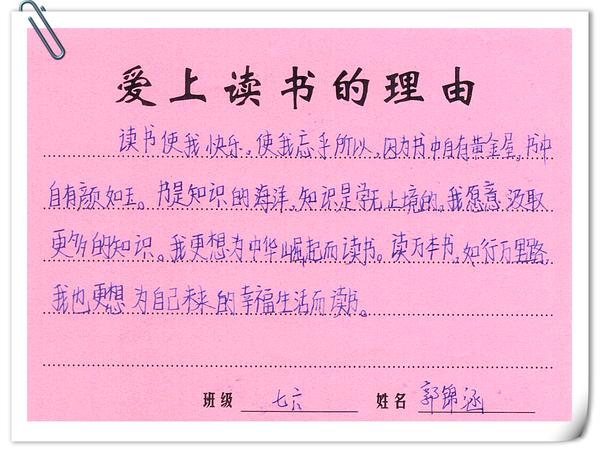 爱上读书的理由
读书使我快乐，使我忘乎所以，因为书中自有黄金屋，书中
自有颜如玉。书是知识的海洋，知识是学无止境的，我愿意汲取
更多的知识。我更想为中华崛起而读书。读万本书，如行万里路
我也更想为自己未来的幸福生活而读书。
班级 七六 姓名 郭锦涵